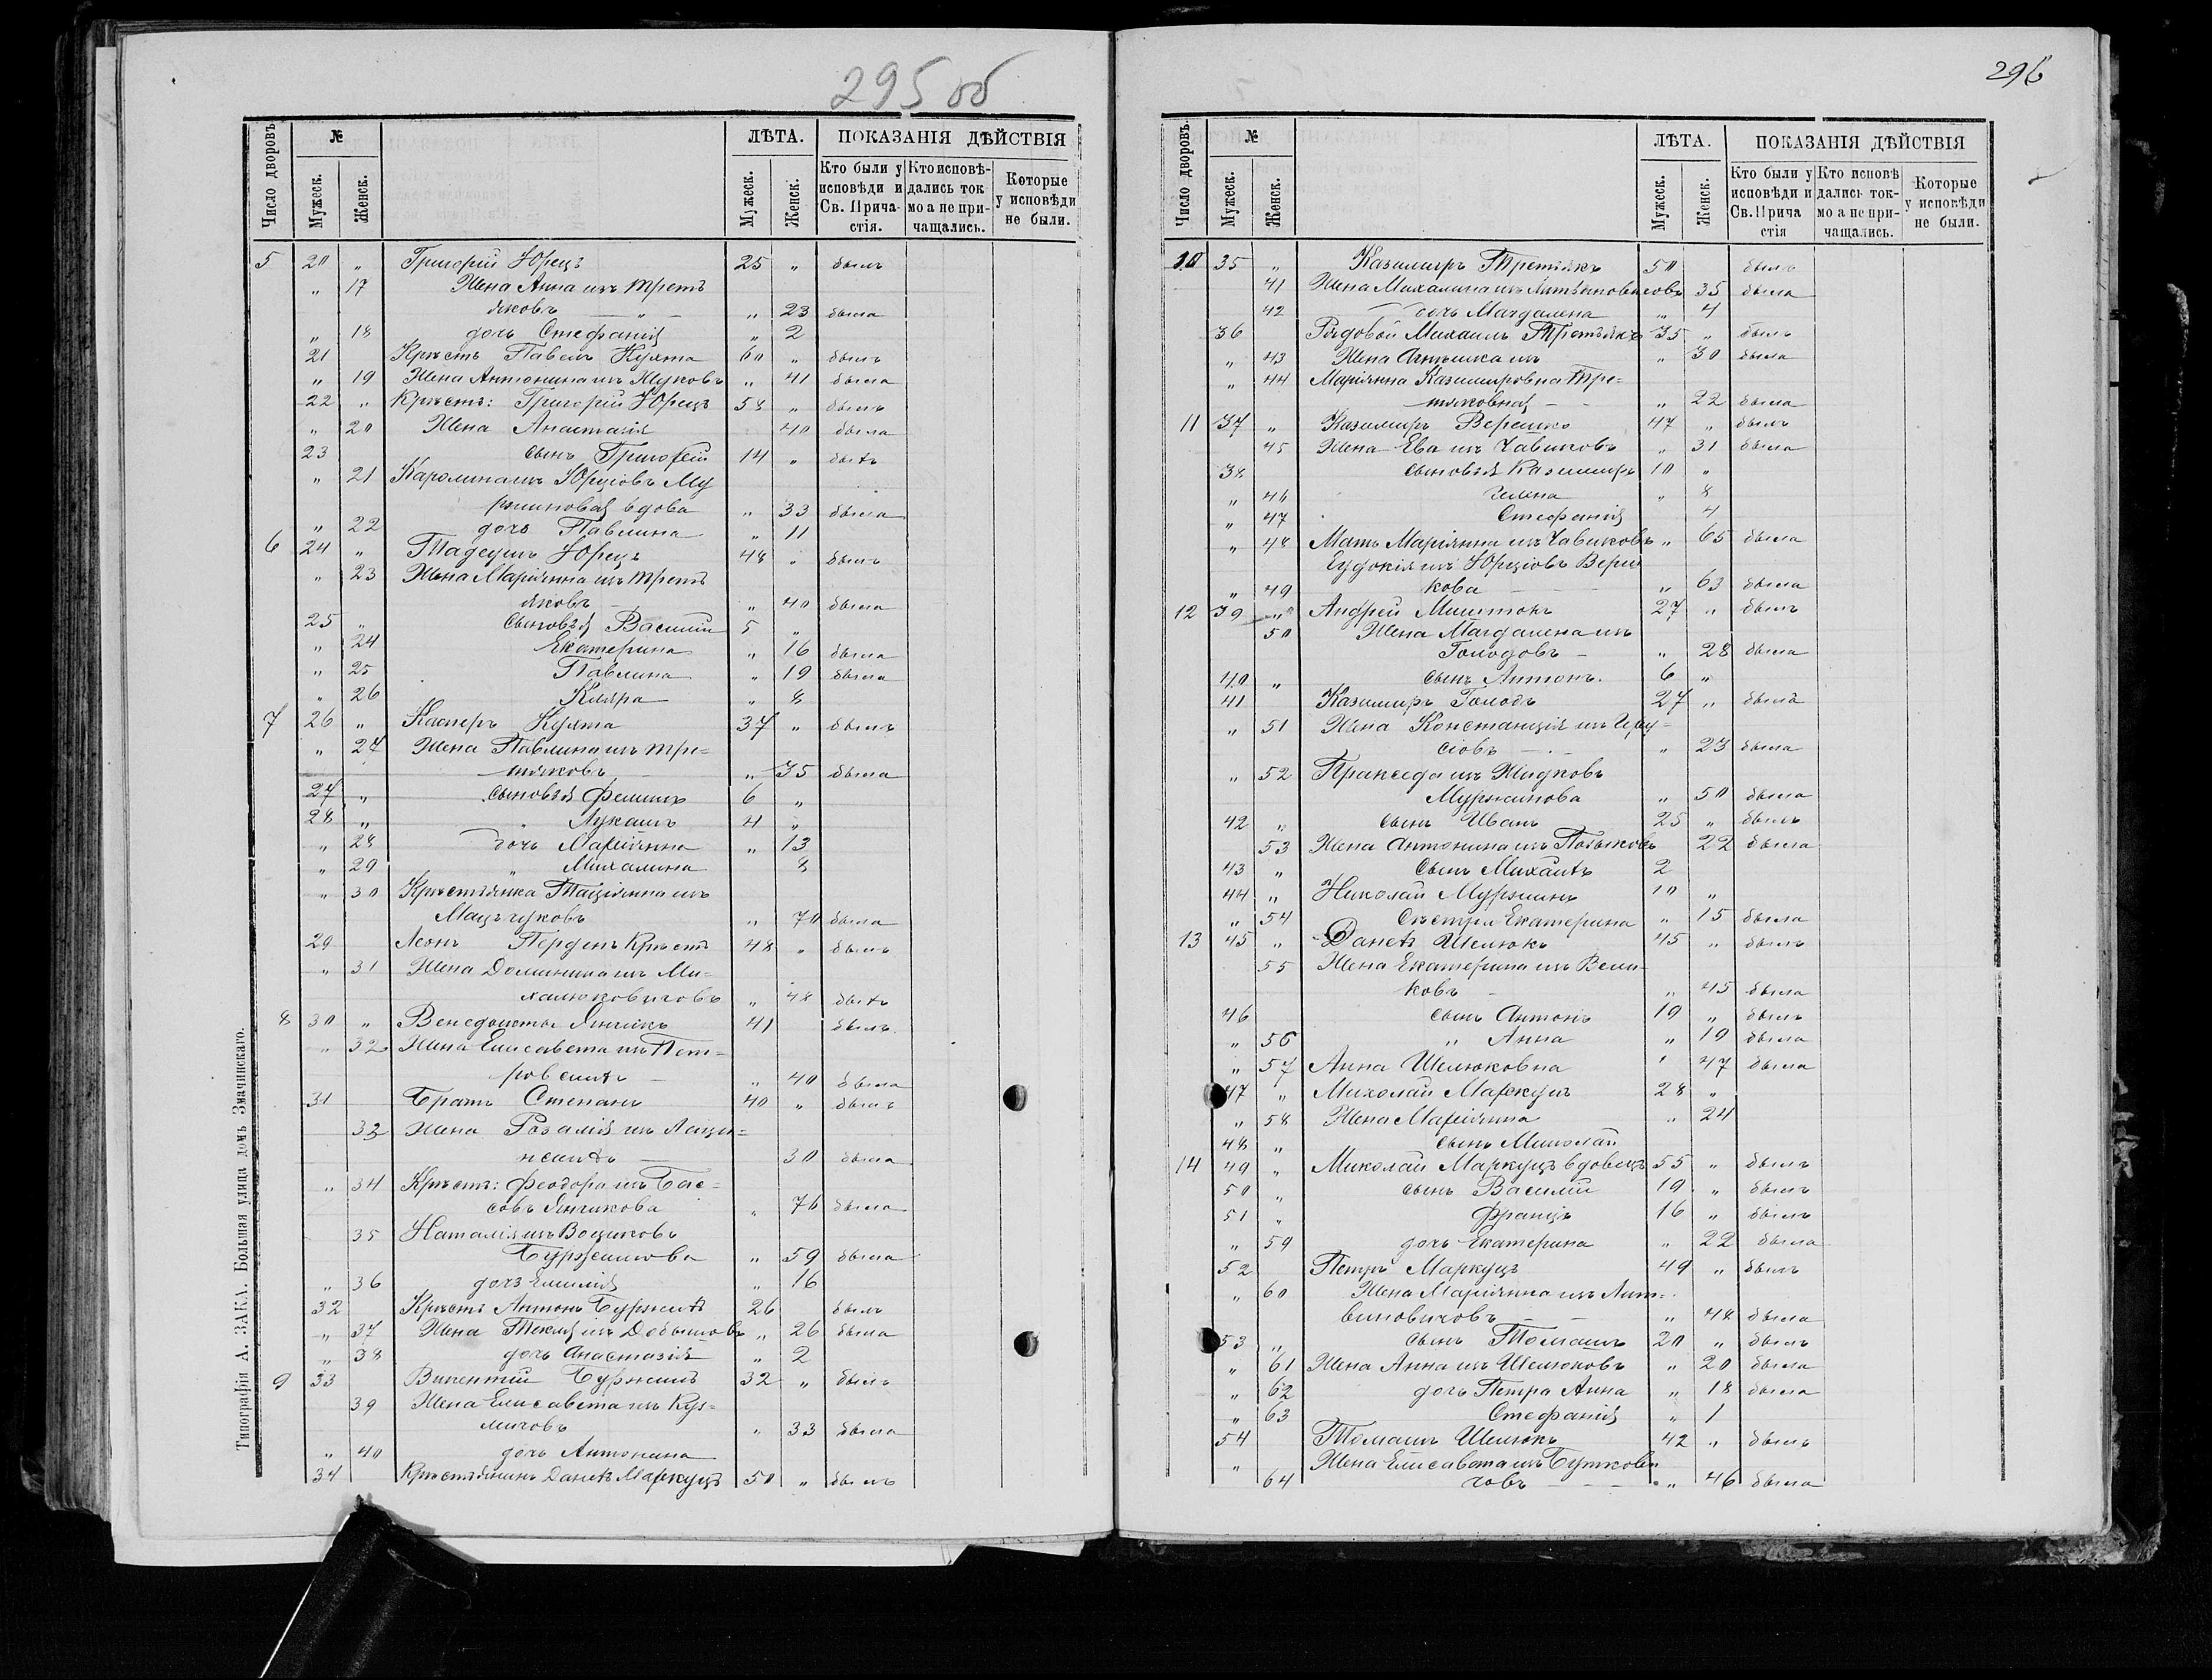 295 об
Число дворовъ.
№
Мужеск.
Женск.
ЛѢТА.
Мужеск.
Женск.
ПОКАЗАНІЯ ДѢЙСТВІЯ
Кто были у исповѣди и Св. Прича-стія.
Кто исповѣ-дались ток мо а не при-чащались.
Которые у исповѣди не были.
5 20 „ Григорій Юрецъ 25 „ былъ
„ 17 Жена Анна изъ Трет
яковъ — „ — „ 23 была
„ 18 дочь Стефанія „ 2
21 Крест Павелъ Кухта 60 „ былъ
„ 19 Жена Антонина изъ Жуковъ „ 41 была
22 „ Крест: Григорій Юрецъ 58 „ былъ
„ 20 Жена Анастазія 40 была
23 сынъ Григорій 14 „ былъ
„ 21 Каролина изъ Юрцовъ Му
ржиновая вдова „ 33 была
„ 22 дочь Павлина „ 11
6 24 „ Тадеушъ Юрецъ 48 „ былъ
„ 23 Жена Маріянна изъ Трет
яковъ — „ 40 была
25 „ Сыновья Василій 5 „
„ 24 Екатерина „ 16 была
„ 25 Павлина „ 19 была
„ 26 Кляра „ 8
7 26 „ Касперъ Кухта 37 „ былъ
„ 27 Жена Павлина изъ Тре=
тяковъ — „ 35 была
27 „ Сыновья Феликсъ 6 „
28 „ „ Лукашъ 4 „
„ 28 дочь Маріянна „ 13
„ 29 „ Михалина 8
„ 30 Крестьянка Таціянна изъ
„ 70 была
29 Леонъ Крест 48 „ былъ
„ 31 Жена Доминика изъ Ми=
халюковичовъ „ 48 былъ
8 30 „ Венедыкты Янчикъ 41 былъ
„ 32 Жена Елисавета изъ Пет=
„ 40 была
31 Братъ Степанъ 40 „ былъ
32 Жена Розалія изъ
— 30 была
„ 34 Крест: Феодора изъ Бас=
совъ Янчикова „ 76 была
35 Наталія изъ
Буржинова „ 59 была
„ 36 дочь Емилія „ 16
32 Крест Антонъ 26 былъ
„ 37 Жена Текля изъ „ 26 была
„ 38 дочь Анастазія „ 2
9 33 Викентій 32 „ былъ
39 Жена Елисавета изъ Куз=
мичовъ „ 33 была
„ 40 дочь Антонина
34 Крестьянинъ Данилъ Маркуцъ 50 „ былъ
Типографія А. ЗАКА. Большая улица домъ Значинскаго.
296
Число дворовъ.
№
Мужеск.
Женск.
ЛѢТА.
Мужеск.
Женск.
ПОКАЗАНІЯ ДѢЙСТВІЯ
Кто были у исповѣди и Св. Прича стія
Кто исповѣ дались ток-мо а не при-чащались.
Которые у исповѣди не были.
10 35 „ Казимиръ Третякъ 50 былъ
41 Жена Михалина изъ 35 была
42 дочь Магдалена „ 4
36 Рядовой Михаилъ Третьякъ 35 „ былъ
„ 43 Жена Агнешка изъ „ 30 была
„ 44 Маріянна Казимировна Тре=
тяковная — — „ 22 была
11 37 „ Казимиръ Верешко 47 „ былъ
45 Жена Ева изъ Чавиковъ „ 31 была
38 Сыновья Казимиръ 10 „
„ 46 Гелена „ 8
„ 47 Стефанія 4
„ 48 Мать Маріянна изъ Чавиковъ „ 65 была
Еудокія изъ Юрцовъ
„ 49 кова — — — „ 63 была
12 39 „ Андрей 27 „ былъ
50 Жена Магдалена изъ
Голодовъ — „ 28 была
40 „ Сынъ Антонъ. 6 „
41 Казимиръ Голодъ 27 „ была
„ 51 Жена Констанція изъ
сіовъ — „ 23 была
„ 52 Пракседа изъ Жидковъ
Муржинова „ 50 была
42 „ Сынъ Иванъ 25 „ былъ
53 Жена Антонина изъ 22 была
43 „ Сынъ Михаилъ 2
44 „ Николай Муржинъ 10 „
„ 54 Сестра Екатерина „ 15 была
13 45 „ Данилъ Шелюкъ 45 „ былъ
55 Жена Екатерина изъ Вели-
ковъ — „ 45 была
46 Сынъ Антонъ 19 „ былъ
„ 56 „ Анна „ 19 была
„ 57 Анна Шелюковна ' 47 была
47 „ Миколай Маркуцъ 28 „
„ 58 Жена Маріянна „ 24
48 „ Сынъ Миколай
14 49 „ Миколай Маркуцъ вдовецъ 55 „ былъ
50 „ сынъ Василій 19 „ былъ
51 „ Францъ 16 „ былъ
„ 59 дочь Екатерина „ 22 была
52 Петръ Маркуцъ 49 „ былъ
„ 60 Жена Маріянна изъ Лит=
виновичовъ — — „ 48 была
53 „ Сынъ Томашъ 20 „ былъ
„ 61 Жена Анна изъ Шелюковъ „ 20 была
„ 62 дочь Петра Анна „ 18 была
„ 63 Стефанія „ 1
54 Томашъ Шелюкъ 42 „ былъ
„ Жена Елисавета изъ Буткови
64 човъ — — — „ 46 была